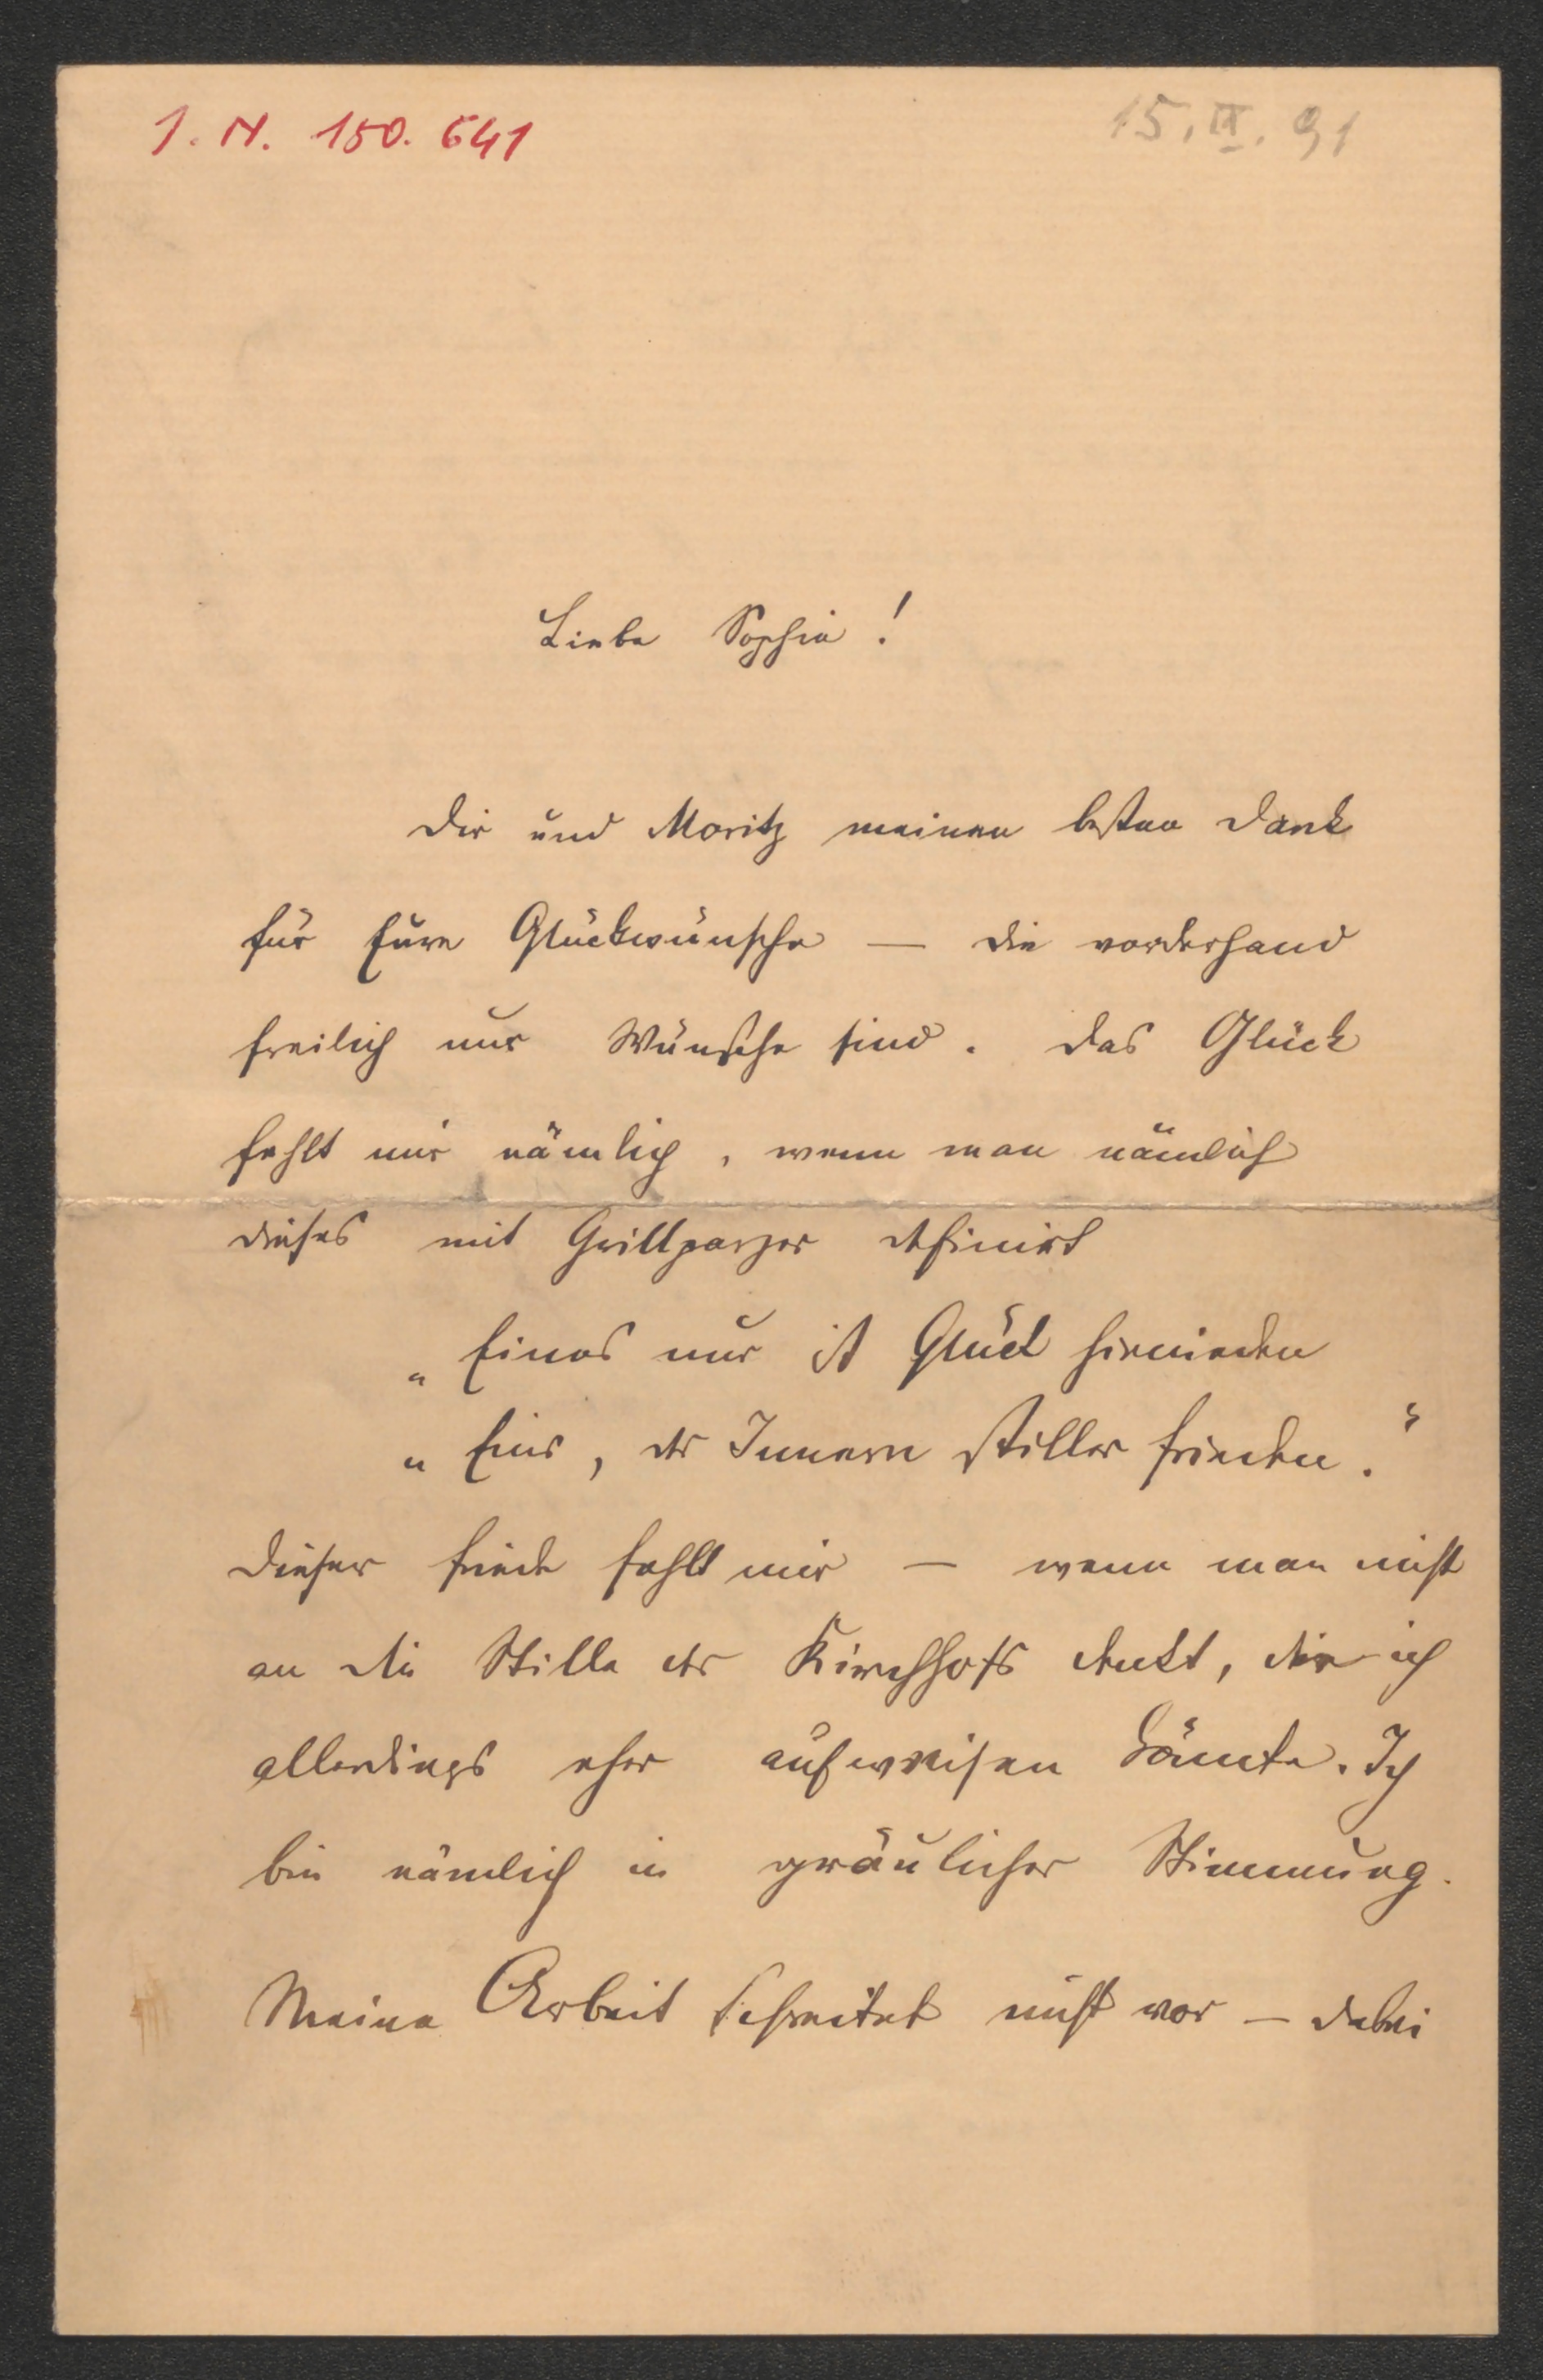 I. N. 150.641
15. IX. 91
Liebe Sophie!
Dir und Moritz meinen besten Dank
für Eure Glückwünsche — die vorderhand
freilich nur Wünsche sind. Das Glück
fehlt mir nämlich, wenn man nämlich
dieses mit Grillparzer definirt
„Eines nur ist Glück hienieden
„Eins, des Innern stiller Frieden.“
Dieser Friede fehlt mir — wenn man nicht
an die Stille des Kirchhofs denkt, die ich
allerdings eher aufweisen könnte. Ich
bin nämlich in gräulicher Stimmung.
Meine Arbeit schreitet nicht vor — dabei